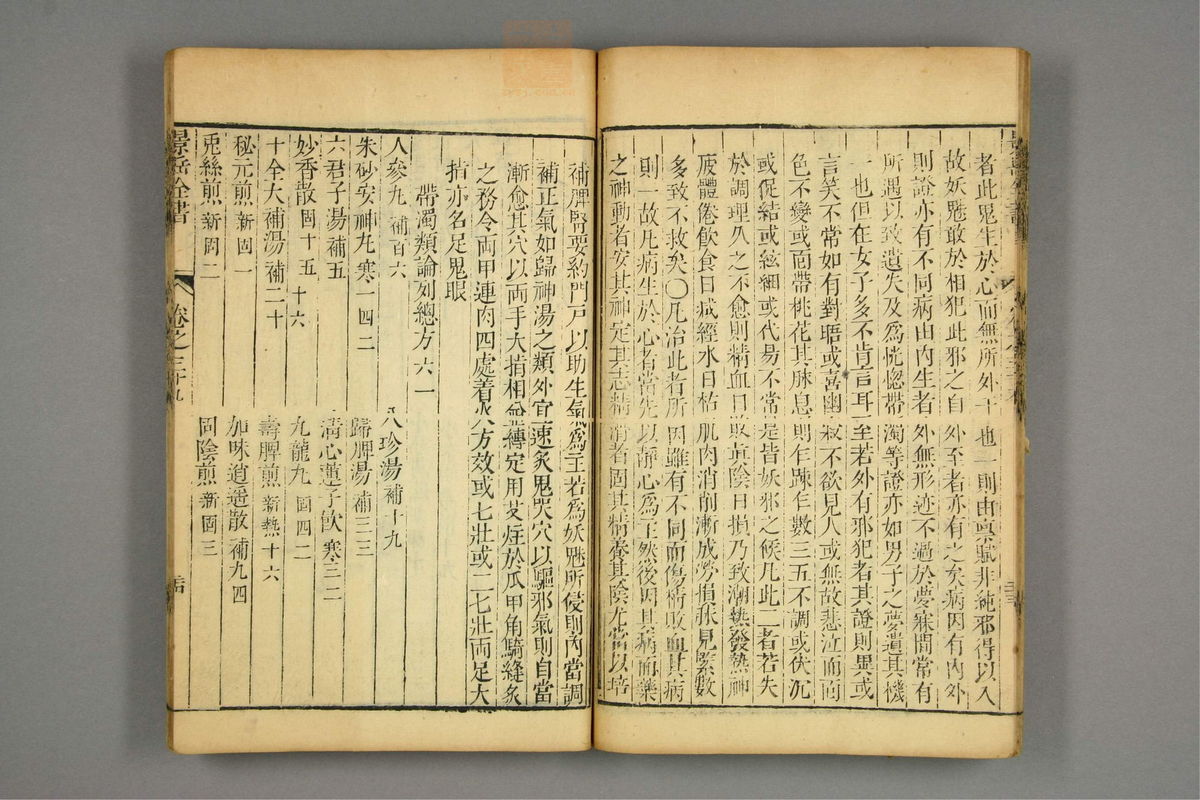 者此鬼生於心而無所外干也一則由禀賦非純邪得以入
故妖魅敢於相犯此邪之自外至者亦有之矣病因有內外
則證亦有不同病由內生者外無形迹不過於夢寐間常有
所遇以致遺失及為恍惚帶濁等證亦如男子之夢遺其機
一也但在女子多不肯言耳至若外有邪犯者其證則異或
言笑不常如有對晤或喜幽寂不欲見人或無故悲泣而面
色不變或面帶桃花其脉息則乍疎乍數三五不調或伏沉
或促結或絃細或代易不常是皆妖邪之候凡此二者若失
於調理久之不愈則精血日敗真陰日損乃致潮熱發熱神
疲體倦飲食日減經水日枯肌肉消削漸成勞損脉見緊數
多致不救矣〇凡治此者所因雖有不同而傷精敗血其病
則一故凡病生於心者當先以靜心為主然後因其病而藥
之神動者安其神定其志精滑者固其精養其陰尤當以培
補脾腎要約門戶以助生氣為主若為妖魅所侵則內當調
補正氣如歸神湯之類外宜速灸鬼哭穴以驅邪氣則自當
漸愈其穴以兩手大指相並縛定用艾炷於爪甲角騎縫灸
之務令兩甲連肉四處着火方效或七壯或二七壯兩足大
指亦名足鬼眼
帶濁類論列總方 六一
人參丸 補百六
八珍湯 補十九
朱砂安神丸 寒一四二
歸脾湯 補三三
六君子湯 補五
清心蓮子飲 寒三二
妙香散 固十五 十六
九龍丸 固四二
十全大補湯 補二十
壽脾煎 新熱十六
秘元煎 新固一
加味逍遥散 補九四
兎絲煎 新固二
固陰煎 新固三
景岳全書
卷之三十九